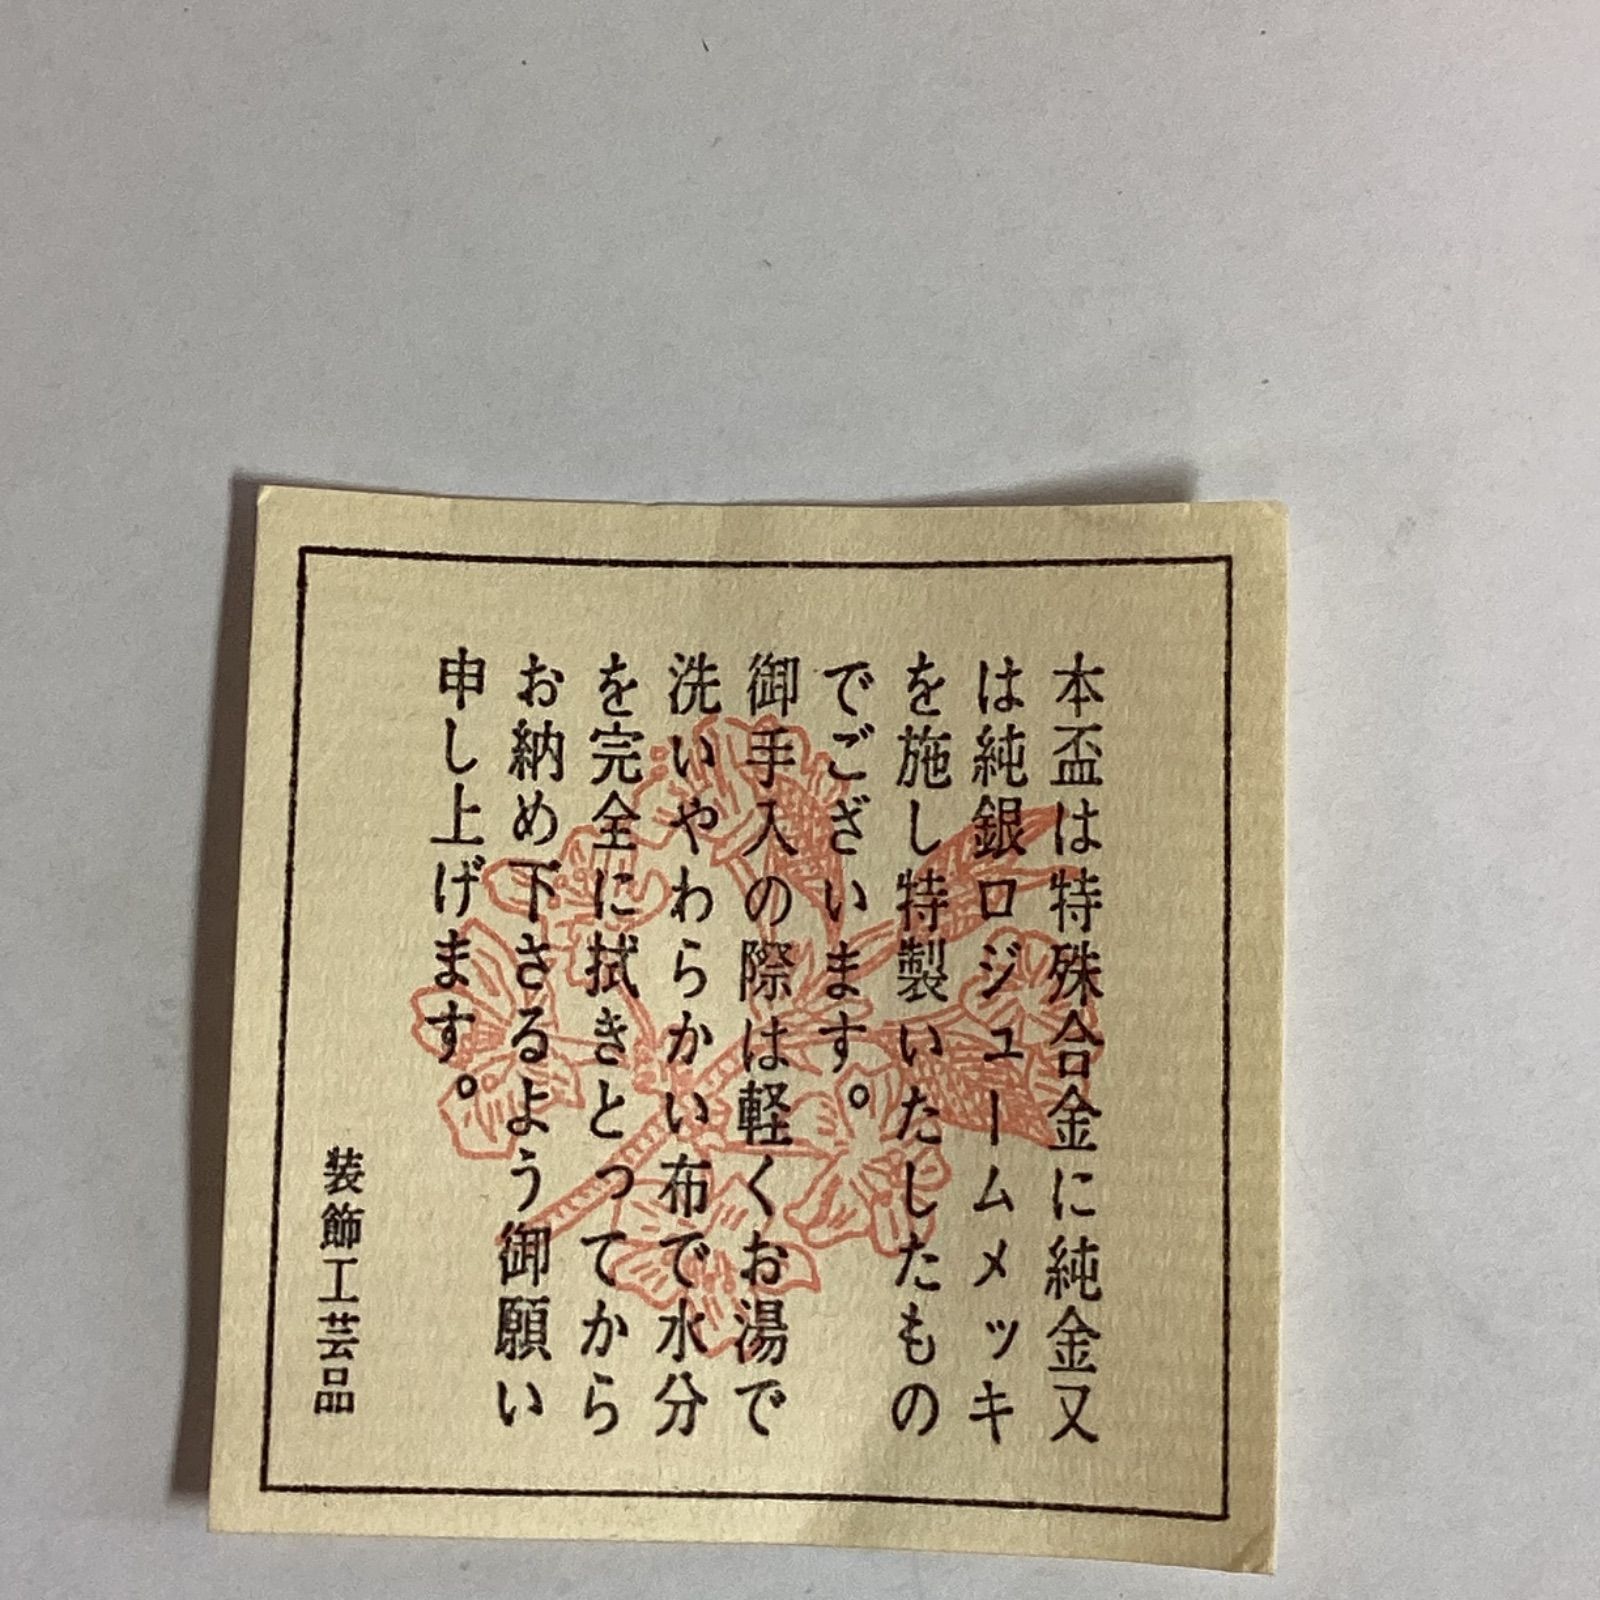 本盃は特殊合金に純金又
は純銀ロジュームメッキ
を施し特製いたしたもの
でございます。
御手入の際は軽くお湯で
洗いやわらかい布で水分
を完全に拭きとってから
お納め下さるよう御願い
申し上げます。
装飾工芸品